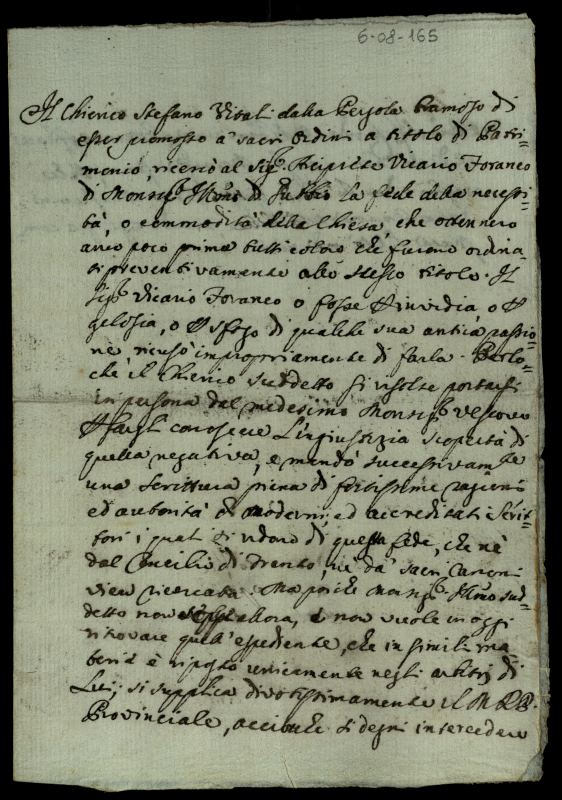 6-08-165
Il Chierico Stefano Vitali dalla Pergola bramoso di
esser promosso a' sacri Ordini a titolo di Patri-
monio, ricercò al Sig.r Arciprete Vicario Foraneo
di Monsig.r Ill.mo di Gubbio la fede della necessi-
tà, o commodità della Chiesa, che ottennero
anco poco prima tutti coloro che furono ordina-
ti preventivamente allo stesso titolo. Il
Sig.r Vicario Foraneo o fosse p invidia, o p
gelosia, o p sfogo di qualche sua antica passio-
ne, ricusò impropriamente di farla. Perlo-
che il Chierico suddetto si risolse portarsi
in persona dal medesimo Monsig.r Vescovo
p fargli conoscere l'ingiustizia scoperta di
quella negativa, e mandò successivam.te
una scrittura piena di fortissime ragioni
ed autorità di moderni, ed accreditati Scrit-
tori i quali si ridono di questa fede, che nè
dal Concilio di Trento, nè da' sacri Canoni
vien ricercata. Ma poiche Monsig.r Ill.mo sud-
detto non allora, e non vuole in oggi
ritrovare quell'espediente, che in simili ma-
terie è riposto unicamente negli arbitrj di
Lui; si supplica divotissimamente il M.R.P.
Provinciale, acciochè si degni intercedere